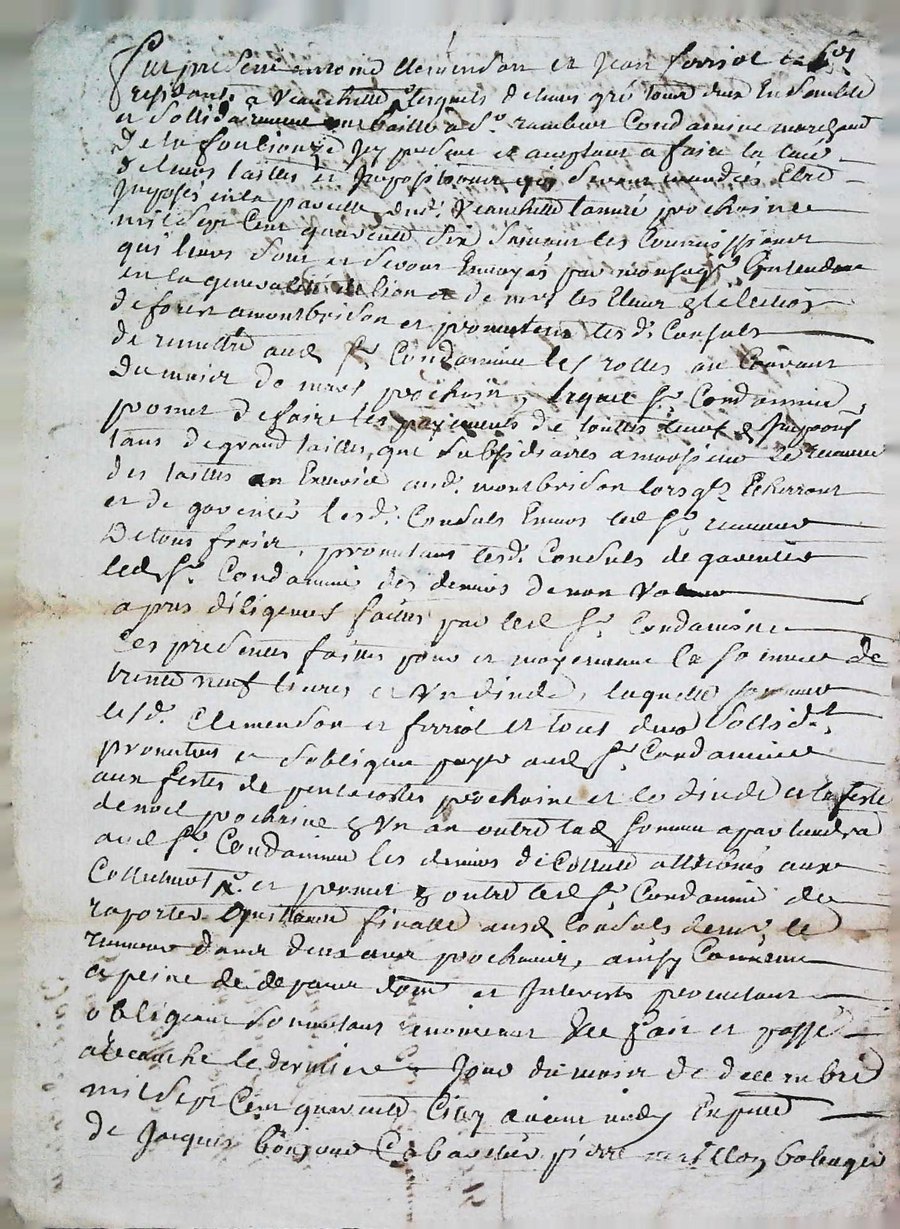 fut present antoine Clemenson et Jean ferriot
residants a Veauchette lesquels de leurs gré tous deux Ensemble
et sollidairement ont baillé a Sr. rambert Condamine marchand
de la fouliouze Icy present et aceptant a faire la
de leurs tailles et Impositions qui seront mandées Etre
Imposés en la paroisse dud. Veauchette lannée prochaine
mil sept Cent quarente six suivant les Commissions
qui leurs sont et seront Envoyés par monsegr. Lintendant
en la generalité de lion et de mrs les Eleus Election
de forest a montbrison et promettent lesd. Consuls
de remettre aud Sr. Condamine les rolles au Courant
du mois de mars prochain, lequel Sr. Condamine
promet de faire les payements de toutes
tant de grand tailles, que subsidiaires a monsieur Le receveur
des tailles en Exercice aud. montbrison lorsqls Echerront
et de garentir lesd. Consuls Envers led Sr. receveur
De tous frais, promettant lesd. Consuls de garentir
led Sr. Condamine des deniers de non
apres diligences faittes par led Sr. Condamine
Ces presentes faittes pour et moyennant la somme de
trente neuf livres et Un dinde, laquelle somme
lesd. Clemenson et ferriot Et tous deux sollidt.
promettent et soblige payer aud Sr. Condamine
aux festes de pentecostes prochaine et le dinde a la feste
de noel prochaine Un an outre lad somme apartiendra
aud Sr. Condamine les deniers de Collecte attribués aux
Collecteurs et promet outre led Sr. Condamine de
raporter quittance finalle ausd Consuls dud. Sr. le
receveur dans deux ans prochains, ainsy Convenu
a peine de de tous dom et Interests promettant
obligeant soumettant renonceant &c fait et passé
a Veauche le dernier Jour du mois de decembre
mil sept Cent quarente Cinq avant midy En presence
de Jacques bonjour Cabaretier pierre bolanger